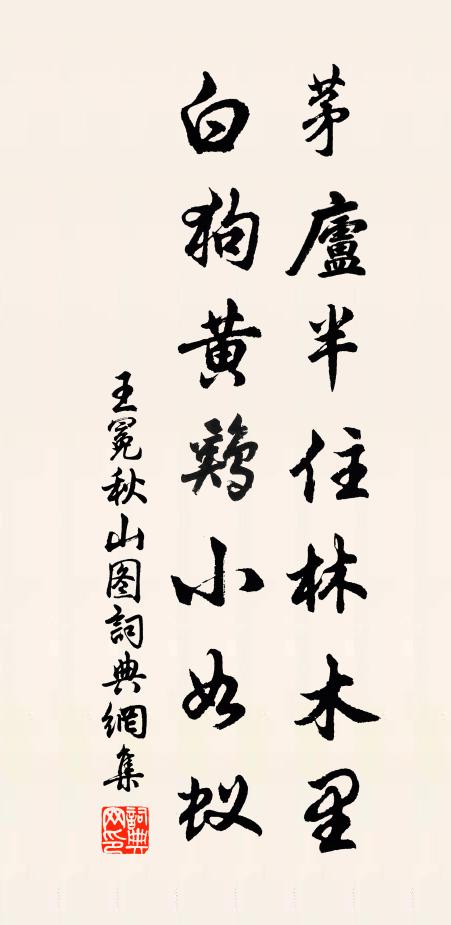 茅廬半住林木里
白狗黄鷄小如蚁
王冕秋山图詞典網集
詞典网印